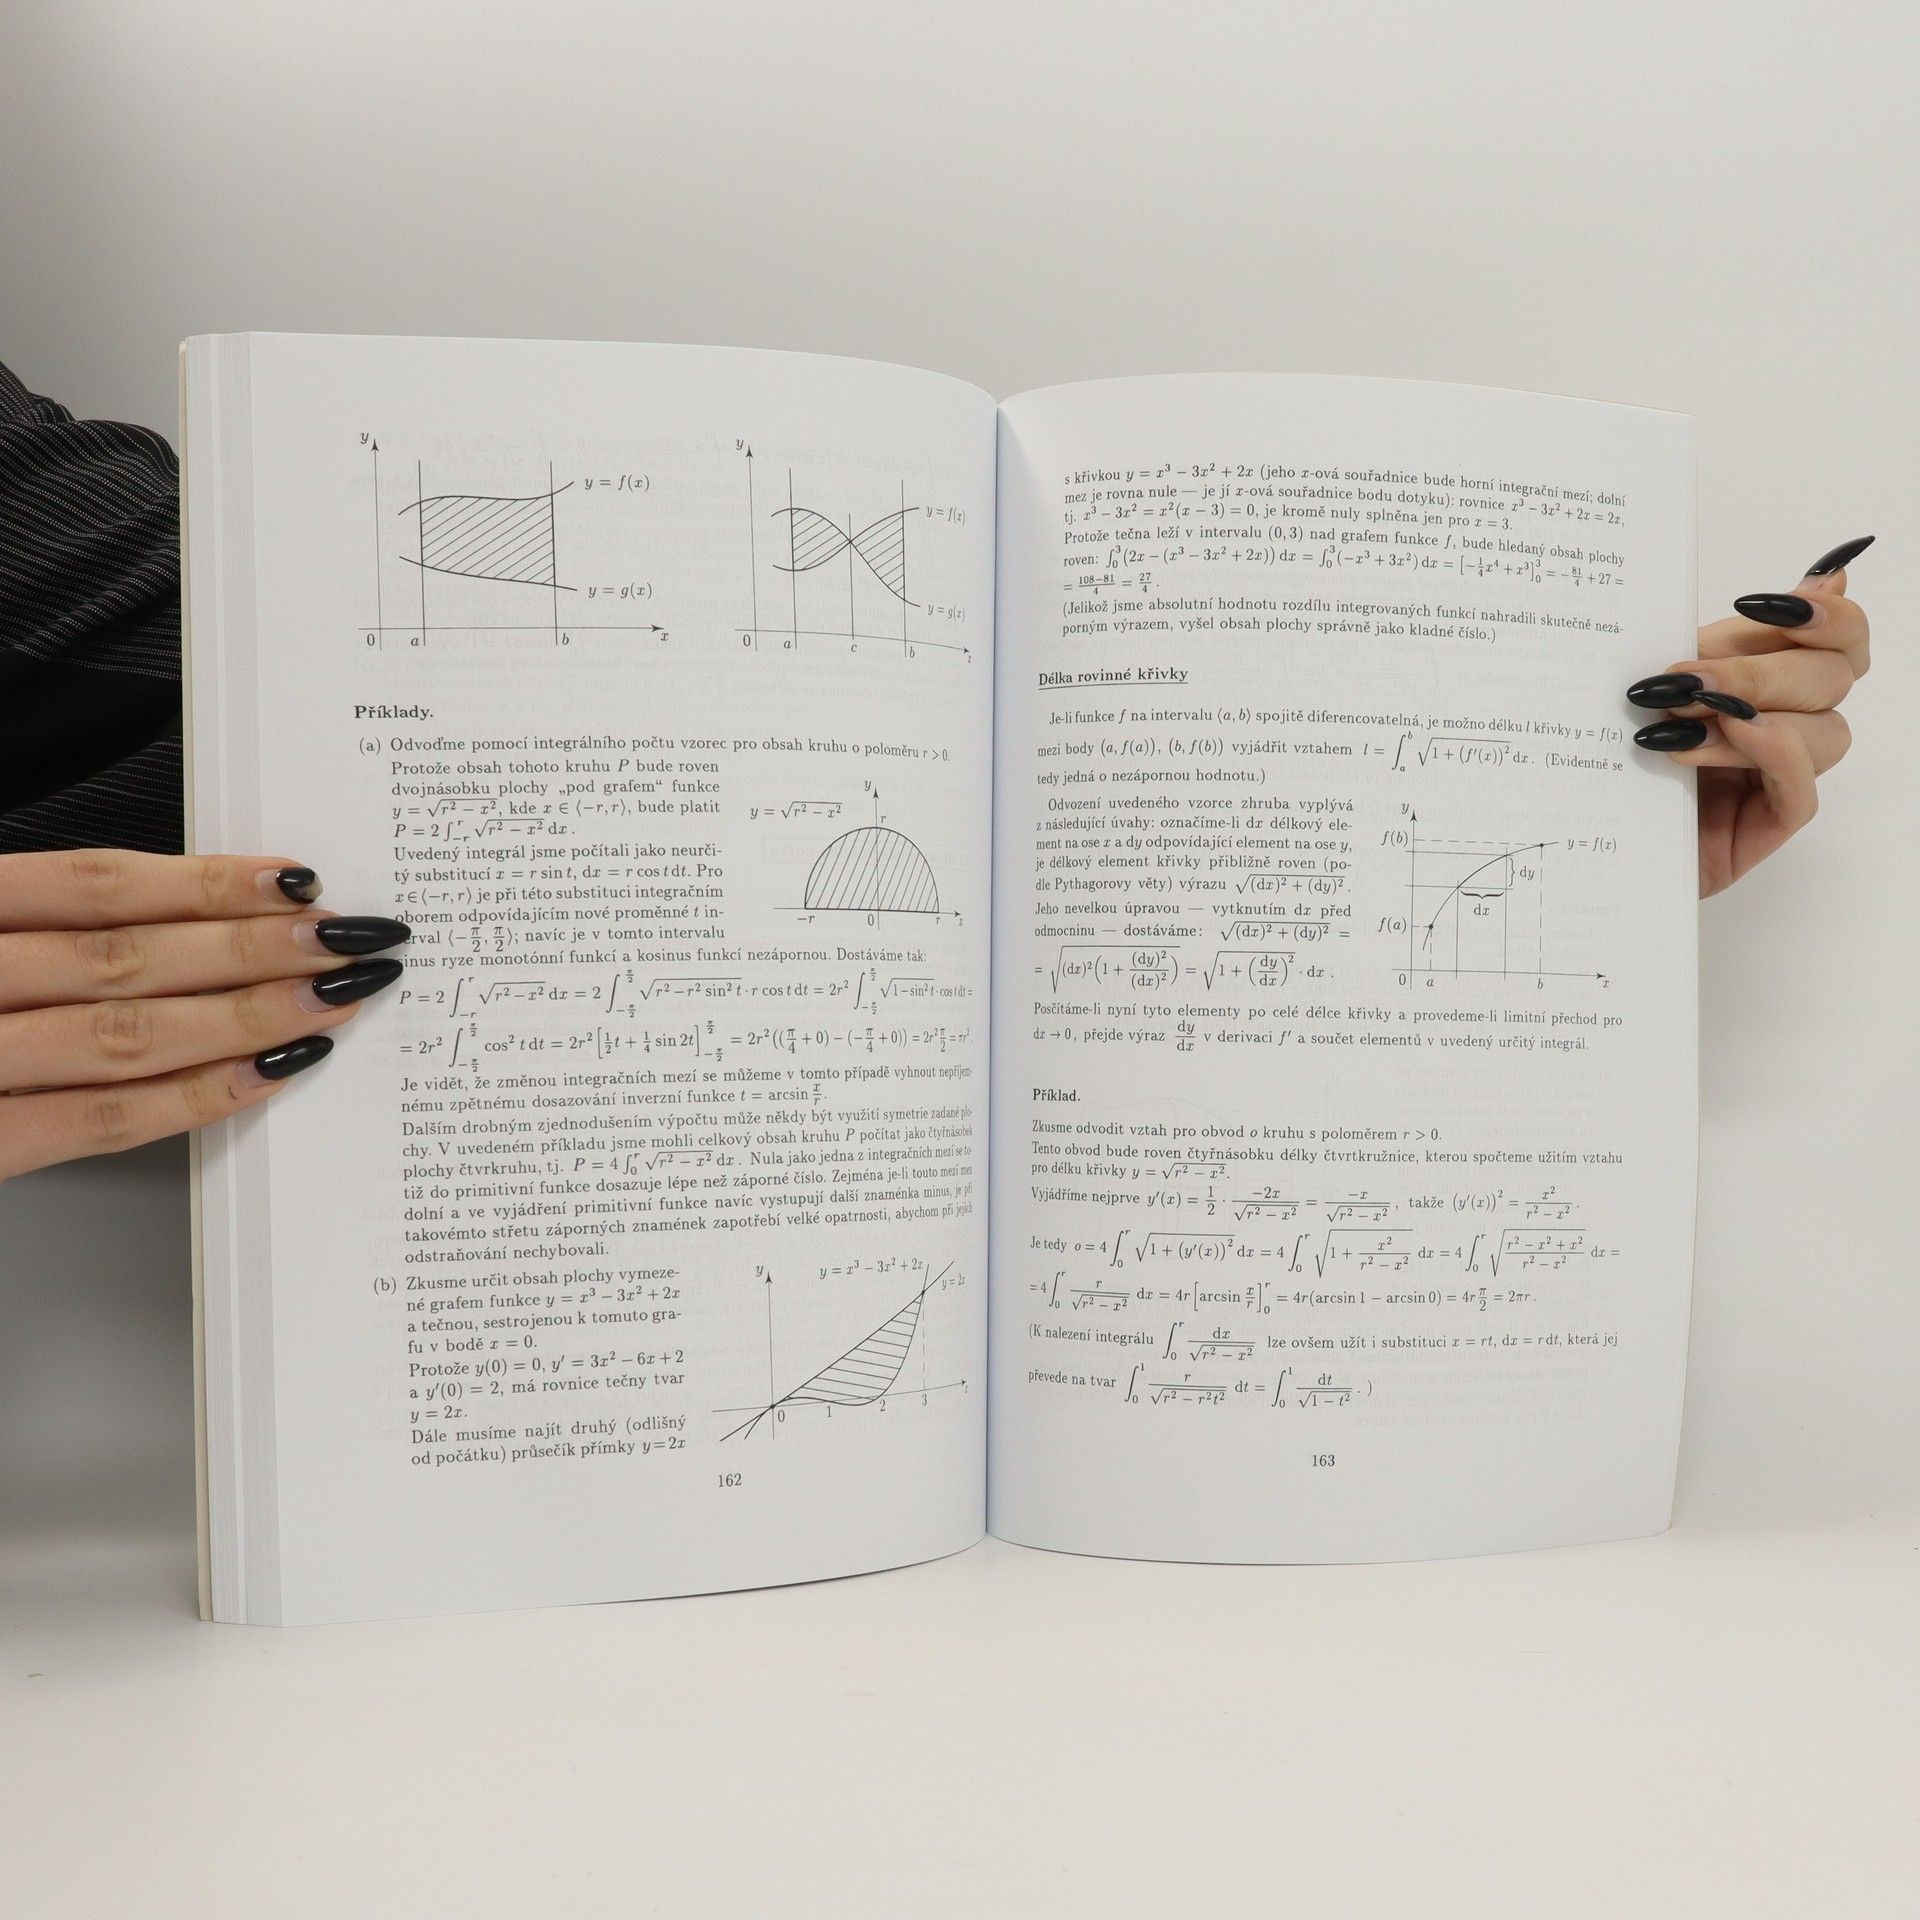 y
y = f(x)
y = g(x)
0 a b x
y
y = f(x)
y = g(x)
0 a c b x
Příklady.
(a) Odvoďme pomocí integrálního počtu vzorec pro obsah kruhu o poloměru r > 0.
Protože obsah tohoto kruhu P bude roven
dvojnásobku plochy „pod grafem“ funkce
y = √(r² − x²), kde x ∈ ⟨−r, r⟩, bude platit
P = 2 ∫_{−r}^{r} √(r² − x²) dx .
Uvedený integrál jsme počítali jako neurči-
tý substitucí x = r sin t, dx = r cos t dt. Pro
x ∈ ⟨−r, r⟩ je při této substituci integračním
oborem odpovídajícím nové proměnné t in-
erval ⟨−π/2, π/2⟩; navíc je v tomto intervalu
y
y = √(r² − x²)
r
−r 0 r x
sinus ryze monotónní funkcí a kosinus funkcí nezápornou. Dostáváme tak:
P = 2 ∫_{−r}^{r} √(r² − x²) dx = 2 ∫_{−π/2}^{π/2} √(r² − r² sin² t) · r cos t dt = 2r² ∫_{−π/2}^{π/2} √(1 − sin² t) · cos t dt =
= 2r² ∫_{−π/2}^{π/2} cos² t dt = 2r² [½t + ¼ sin 2t]_{−π/2}^{π/2} = 2r² ((π/4 + 0) − (−π/4 + 0)) = 2r² π/2 = πr².
Je vidět, že změnou integračních mezí se můžeme v tomto případě vyhnout nepříjem-
nému zpětnému dosazování inverzní funkce t = arcsin x/r.
Dalším drobným zjednodušením výpočtu může někdy být využití symetrie zadané plo-
chy. V uvedeném příkladu jsme mohli celkový obsah kruhu P počítat jako čtyřnásobek
plochy čtvrkruhu, tj. P = 4 ∫_0^r √(r² − x²) dx . Nula jako jedna z integračních mezí se to-
tiž do primitivní funkce dosazuje lépe než záporné číslo. Zejména je-li touto mezí mez
dolní a ve vyjádření primitivní funkce navíc vystupují další znaménka minus, je při
takovémto střetu záporných znamének zapotřebí velké opatrnosti, abychom při jejich
odstraňování nechybovali.
(b) Zkusme určit obsah plochy vymeze-
né grafem funkce y = x³ − 3x² + 2x
a tečnou, sestrojenou k tomuto gra-
fu v bodě x = 0.
Protože y(0) = 0, y′ = 3x² − 6x + 2
a y′(0) = 2, má rovnice tečny tvar
y = 2x.
Dále musíme najít druhý (odlišný
od počátku) průsečík přímky y = 2x
y
y = x³ − 3x² + 2x
y = 2x
0 1 2 3 x
162
s křivkou y = x³ − 3x² + 2x (jeho x-ová souřadnice bude horní integrační mezí; dolní
mez je rovna nule — je jí x-ová souřadnice bodu dotyku): rovnice x³ − 3x² + 2x = 2x,
tj. x³ − 3x² = x²(x − 3) = 0, je kromě nuly splněna jen pro x = 3.
Protože tečna leží v intervalu (0, 3) nad grafem funkce f, bude hledaný obsah plochy
roven: ∫_0^3 (2x − (x³ − 3x² + 2x)) dx = ∫_0^3 (−x³ + 3x²) dx = [−¼x⁴ + x³]_0^3 = −81/4 + 27 =
= (108−81)/4 = 27/4 .
(Jelikož jsme absolutní hodnotu rozdílu integrovaných funkcí nahradili skutečně nezá-
porným výrazem, vyšel obsah plochy správně jako kladné číslo.)
Délka rovinné křivky
Je-li funkce f na intervalu ⟨a, b⟩ spojitě diferencovatelná, je možno délku l křivky y = f(x)
mezi body (a, f(a)), (b, f(b)) vyjádřit vztahem l = ∫_a^b √(1 + (f′(x))²) dx . (Evidentně se
tedy jedná o nezápornou hodnotu.)
Odvození uvedeného vzorce zhruba vyplývá
z následující úvahy: označíme-li dx délkový ele-
ment na ose x a dy odpovídající element na ose y,
je délkový element křivky přibližně roven (po-
dle Pythagorovy věty) výrazu √((dx)² + (dy)²) .
Jeho nevelkou úpravou — vytknutím dx před
odmocninu — dostáváme: √((dx)² + (dy)²) =
= √((dx)²(1 + (dy)²/(dx)²)) = √(1 + (dy/dx)²) · dx .
y
f(b)
y = f(x)
dy
dx
f(a)
0 a b x
Posčítáme-li nyní tyto elementy po celé délce křivky a provedeme-li limitní přechod pro
dx → 0, přejde výraz dy/dx v derivaci f′ a součet elementů v uvedený určitý integrál.
Příklad.
Zkusme odvodit vztah pro obvod o kruhu s poloměrem r > 0.
Tento obvod bude roven čtyřnásobku délky čtvrtkružnice, kterou spočteme užitím vztahu
pro délku křivky y = √(r² − x²).
Vyjádříme nejprve y′(x) = 1/2 · −2x/√(r² − x²) = −x/√(r² − x²) , takže (y′(x))² = x²/(r² − x²) .
Je tedy o = 4 ∫_0^r √(1 + (y′(x))²) dx = 4 ∫_0^r √(1 + x²/(r² − x²)) dx = 4 ∫_0^r √((r² − x² + x²)/(r² − x²)) dx =
= 4 ∫_0^r r/√(r² − x²) dx = 4r [arcsin x/r]_0^r = 4r(arcsin 1 − arcsin 0) = 4r π/2 = 2πr .
(K nalezení integrálu ∫_0^r dx/√(r² − x²) lze ovšem užít i substituci x = rt, dx = r dt, která jej
převede na tvar ∫_0^1 r/√(r² − r²t²) dt = ∫_0^1 dt/√(1 − t²) . )
163